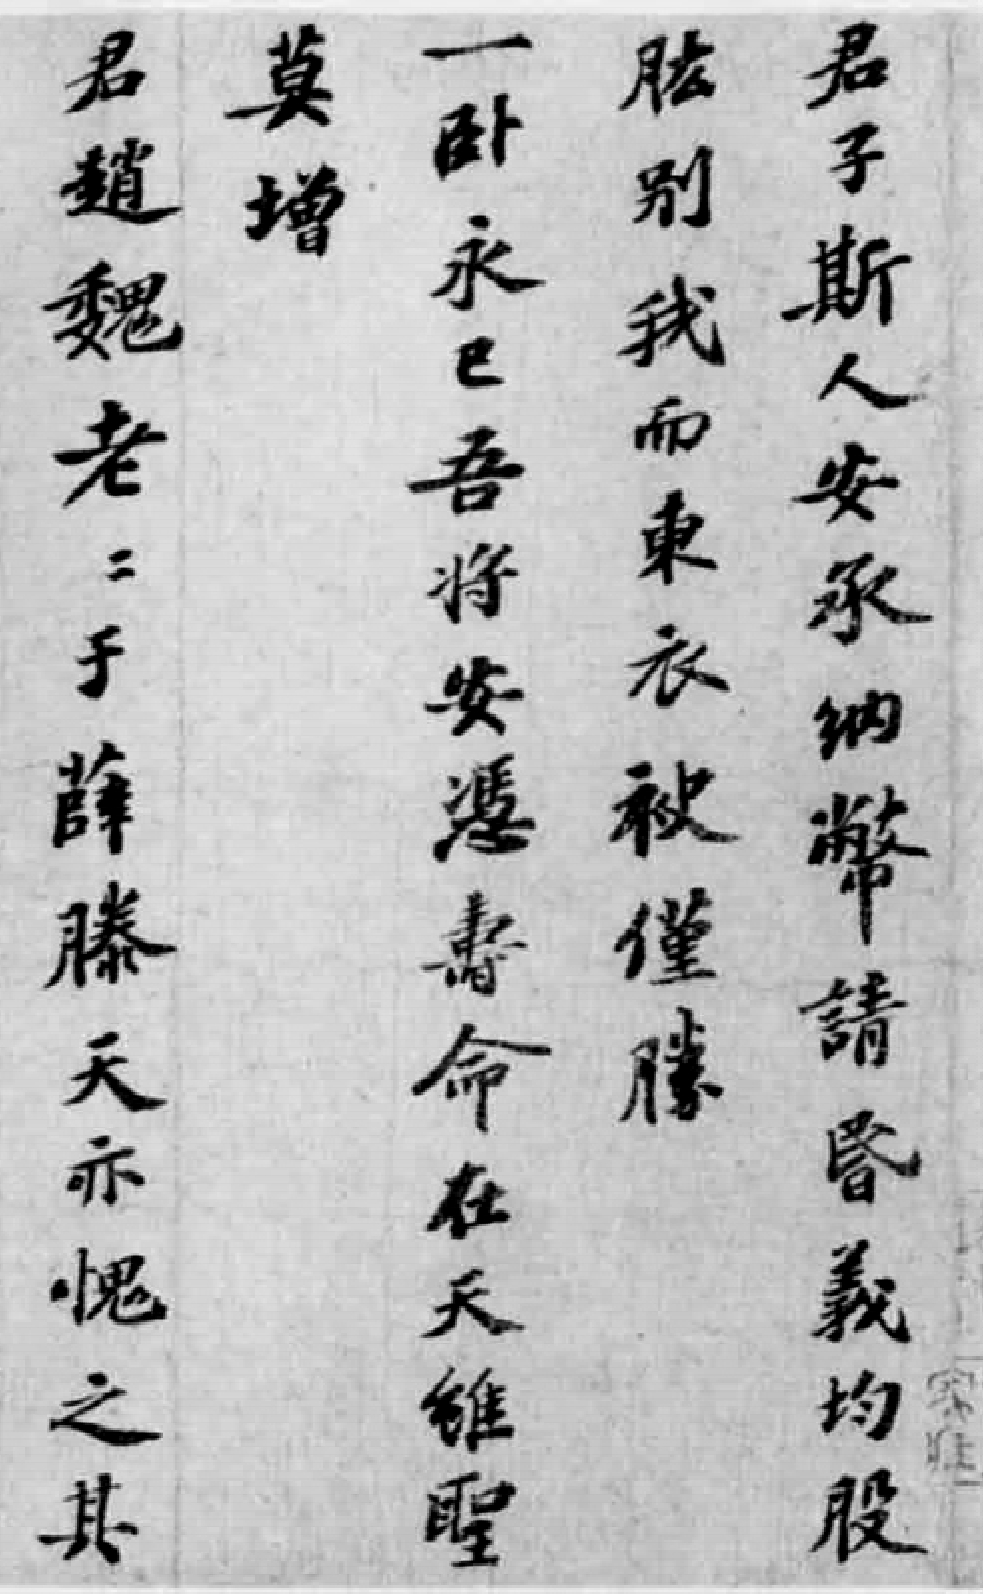 君子斯人安承納幣請昏義均股
肱別我而東衣袂僅勝
一卧永已吾將安憑壽命在天雖聖
莫增
君趙魏老二于薛滕天亦愧之其